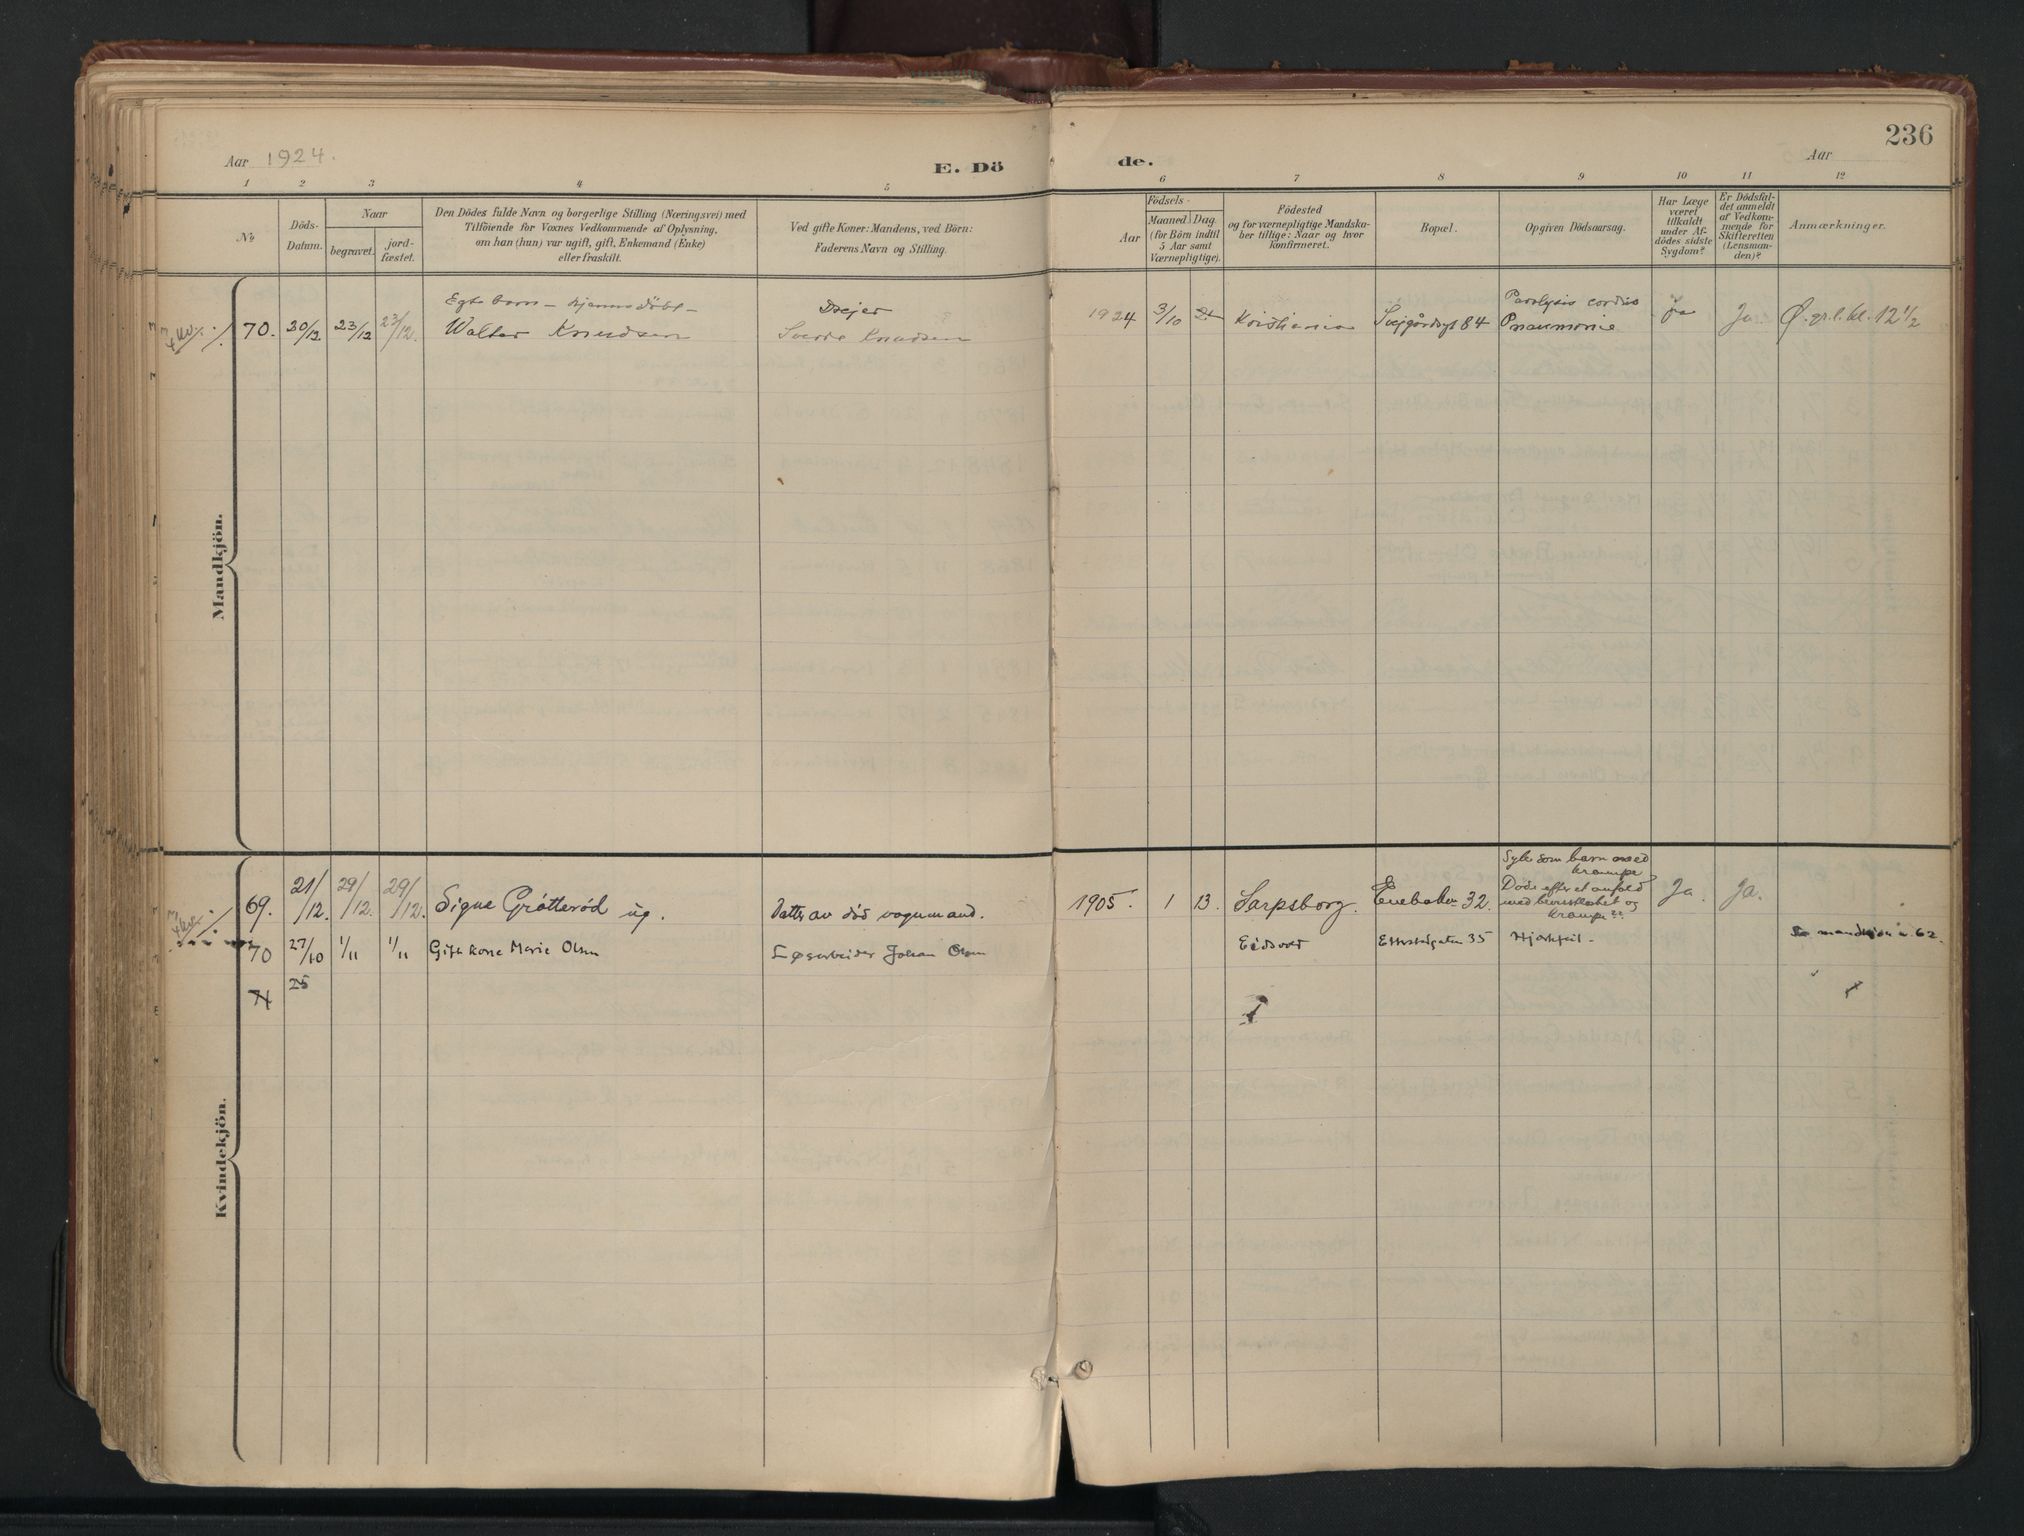 236
Aar 1924.
E. Dö
de.
Aar
1 2 3 4 5 6 7 8 9 10 11 12
No
Döds-Datum.
Naar
begravet.
jord-fæstet.
Den Dödes fulde Navn og borgerlige Stilling (Næringsvei) med
Tilföiende for Voxnes Vedkommende af Oplysning,
om han (hun) var ugift, gift, Enkemand (Enke)
eller fraskilt.
Ved gifte Koner: Mandens, ved Börn:
Faderens Navn og Stilling.
Födsels-
Aar
Maaned. Dag.
(for Börn indtil
5 Aar samt
Værnepligtige).
Födested
og for værnepligtige Mandska-
ber tillige: Naar og hvor
konfirmeret.
Bopæl.
Opgiven Dödsaarsag.
Har Læge
været
tilkaldt
under Af-
dödes sidste
Sygdom?
Er Dödsfal-
det anmeldt
af Vedkom-
mende for
Skifteretten
(Lensman-
den)?
Anmærkninger.
Mandkjön.
Egte barn – hjemmedöbt – Dreier Paralysis cordis
70. 20/12 23/12 23/12. Walter Knudsen Sverre Knudsen 1924 3/10 Kristiania 84 Pneumonie Ja Ja Ø. gr. l. kl. 12 1/2
Kvindekjön.
Syk som barn med
krampe
69. 21/12. 29/12. 29/12. Signe Gråtterød ug. Datter av död vognmand. 1905. 1 13. Sarpsborg. Enebakkv 32. Döde efter et anfald Ja. Ja.
med bevistløshet og
krampe
70 27/10 1/11 1/11 Gift kone Marie Olsen Løsarbeider Johan Olsen Eidsvold 35 Hjertefeil – Se mandkjön n. 62.
25
71